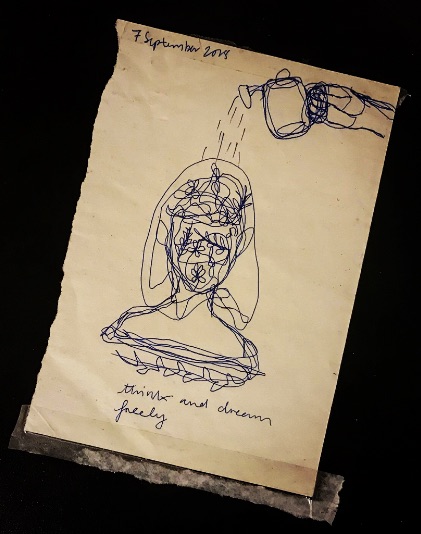 7 September 2018
think and dream
freely